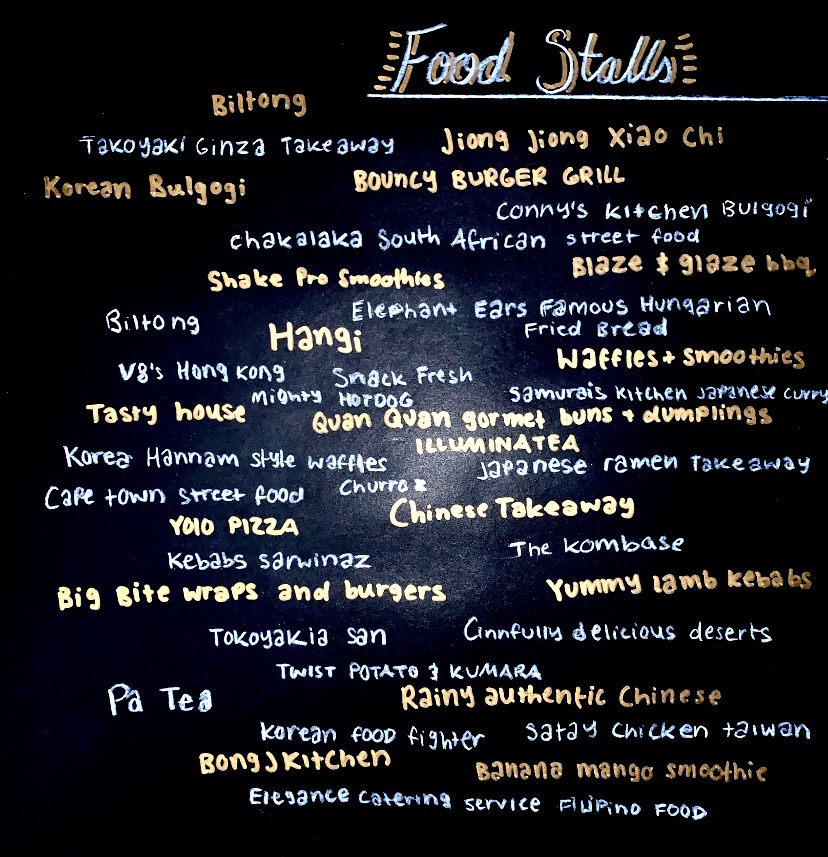 Food Stalls
Biltong
Takoyaki Ginza Takeaway
Jiong Jiong Xiao Chi
Korean Bulgogi
BOUNCY BURGER GRILL
Conny's kitchen Bulgogi
chakalaka South African street food
Blaze & glaze bbq
Shake Pro Smoothies
Elephant Ears Famous Hungarian
Fried Bread
Biltong
Hangi
Waffles + smoothies
V8's Hong Kong
Snack Fresh
Mighty HOTDOG
Samurais kitchen Japanese curry
Tasty house
Quan Quan gormet buns + dumplings
ILLUMINATEA
Korea Hannam style waffles
Japanese ramen Takeaway
Cape town street food
Churros
Chinese Takeaway
YOLO PIZZA
The kombase
Kebabs sarwinaz
Big Bite wraps and burgers
Yummy lamb kebabs
Tokoyakia san
Cinnfully delicious deserts
TWIST POTATO & KUMARA
Pa Tea
Rainy authentic Chinese
Korean food fighter
Satay chicken taiwan
Bong J Kitchen
Banana mango smoothie
Elegance catering service Filipino FOOD